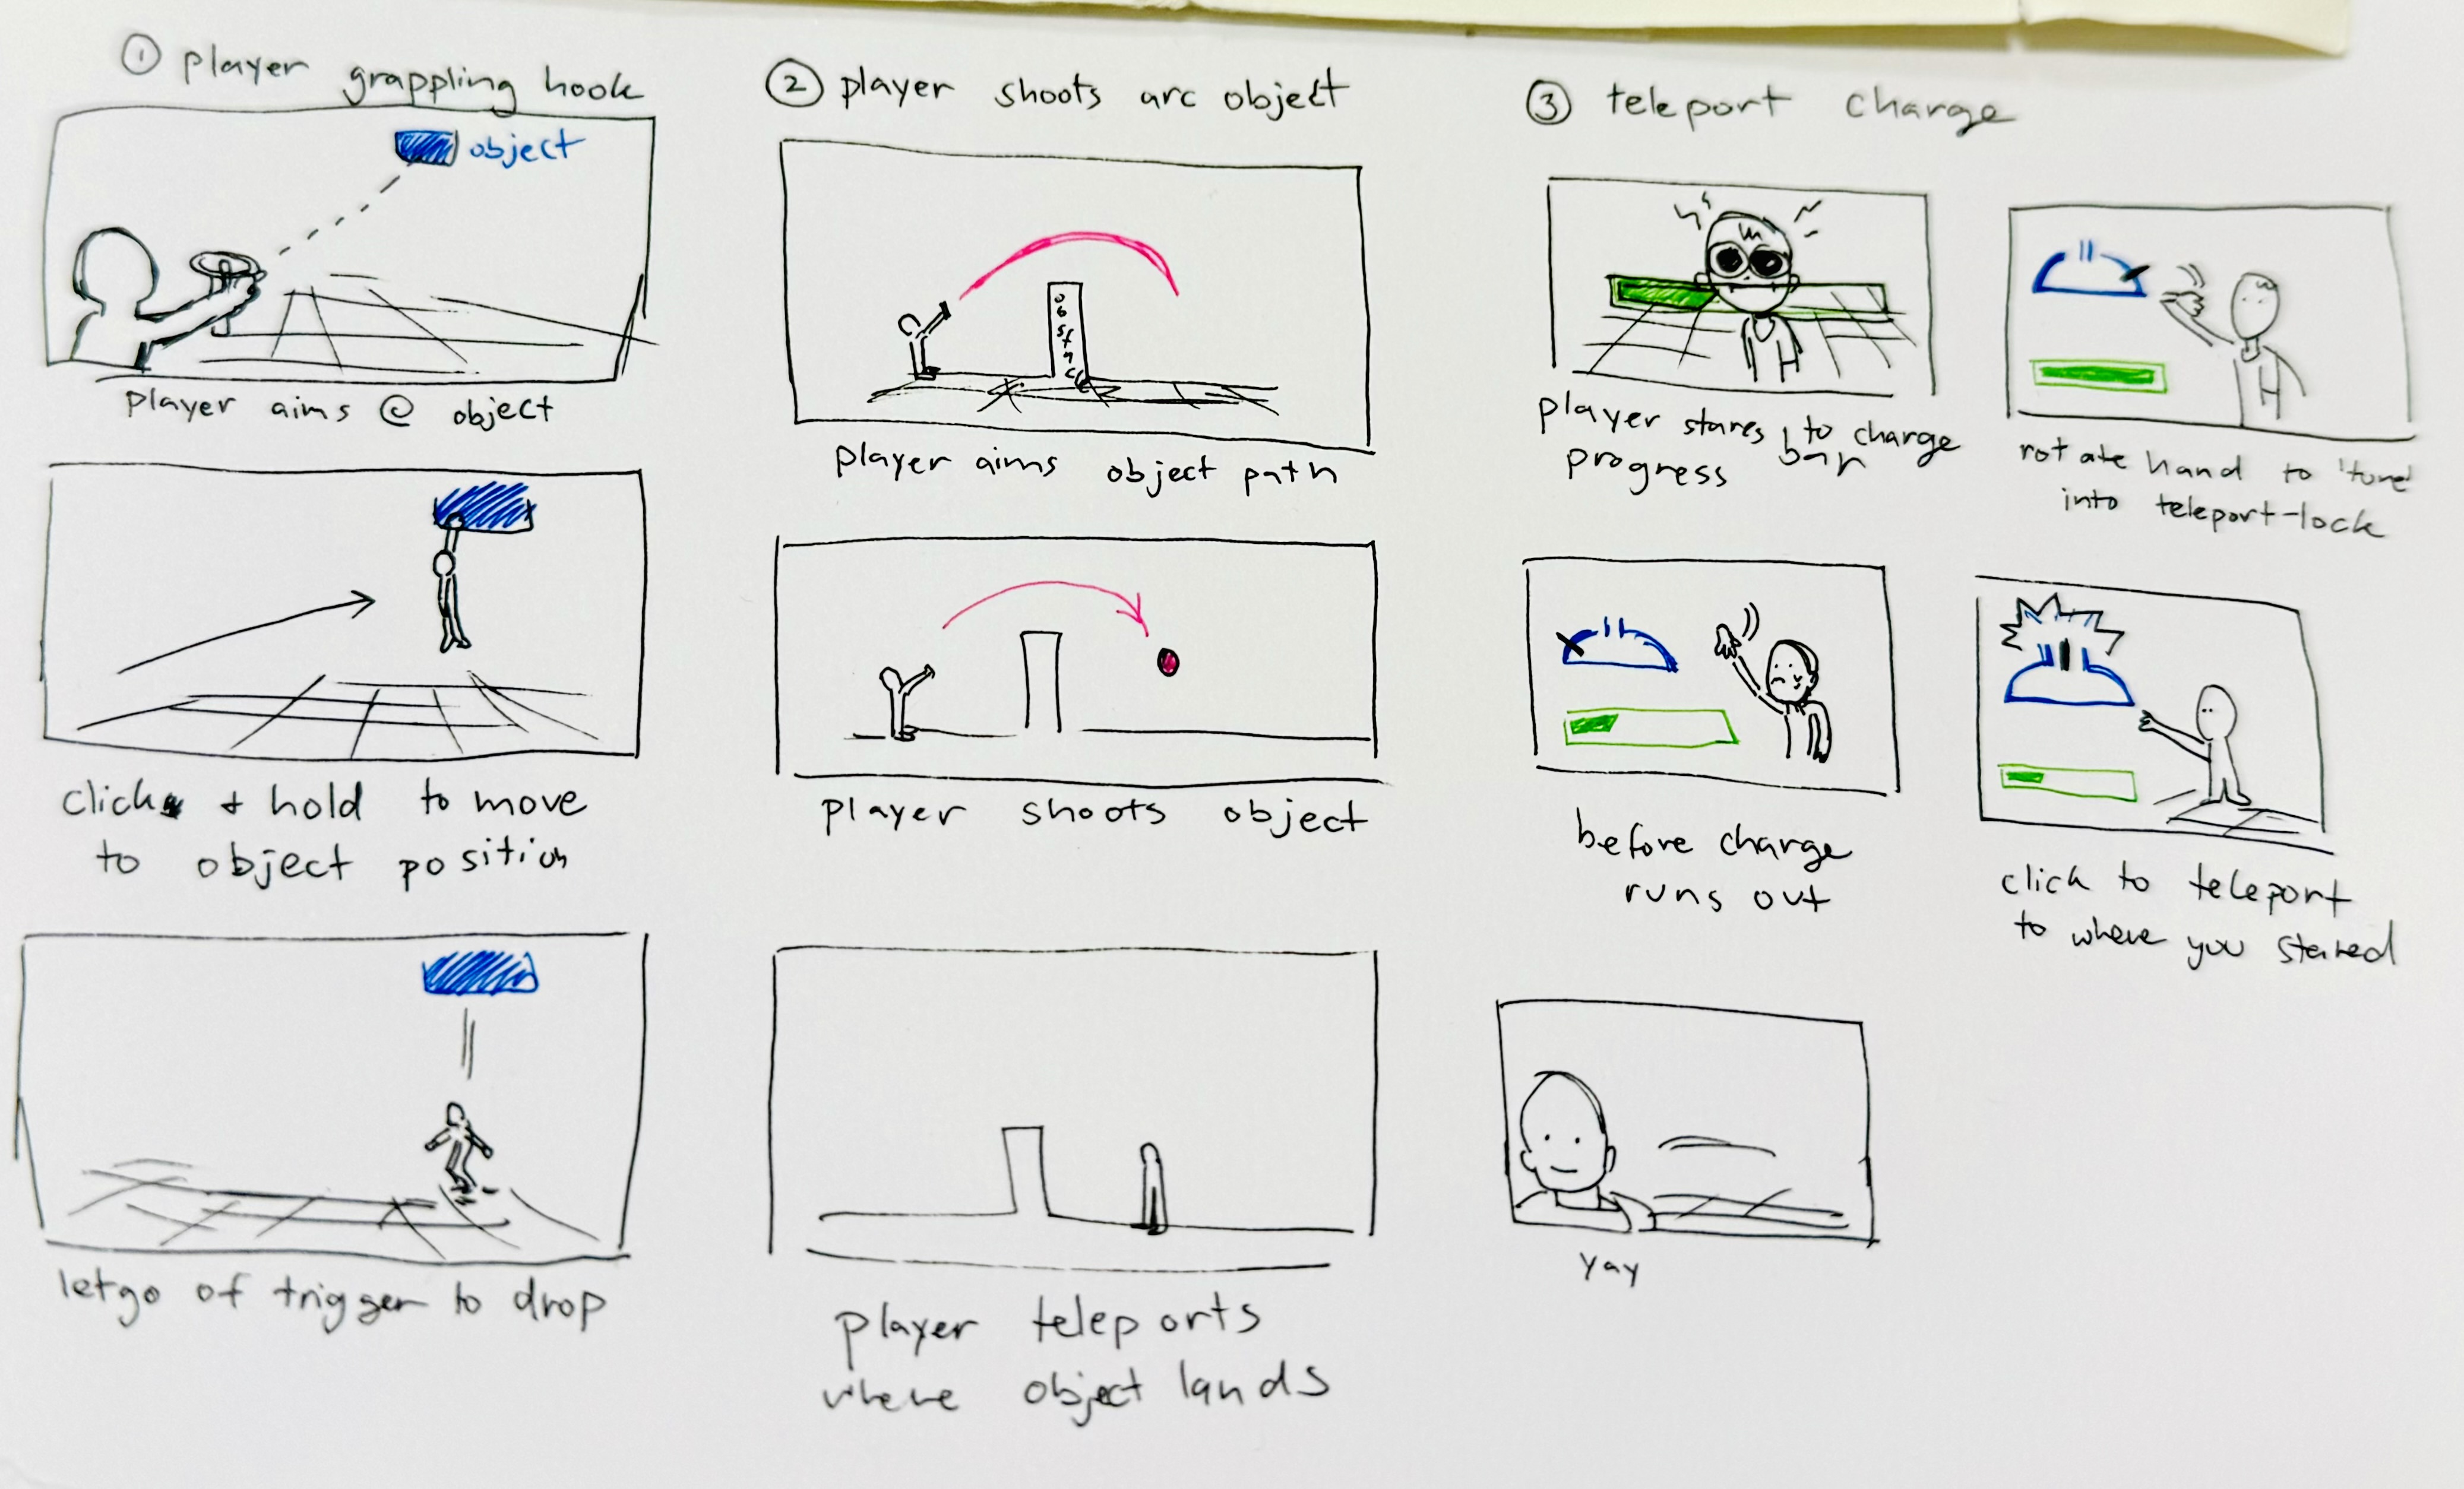 ① player grappling hook
object
player aims @ object
click + hold to move
to object position
let go of trigger to drop
② player shoots arc object
obstacle
player aims object path
player shoots object
player teleports
where object lands
③ teleport charge
player stares to charge
progress bar
rotate hand to 'tune'
into teleport-lock
before charge
runs out
click to teleport
to where you stared
yay